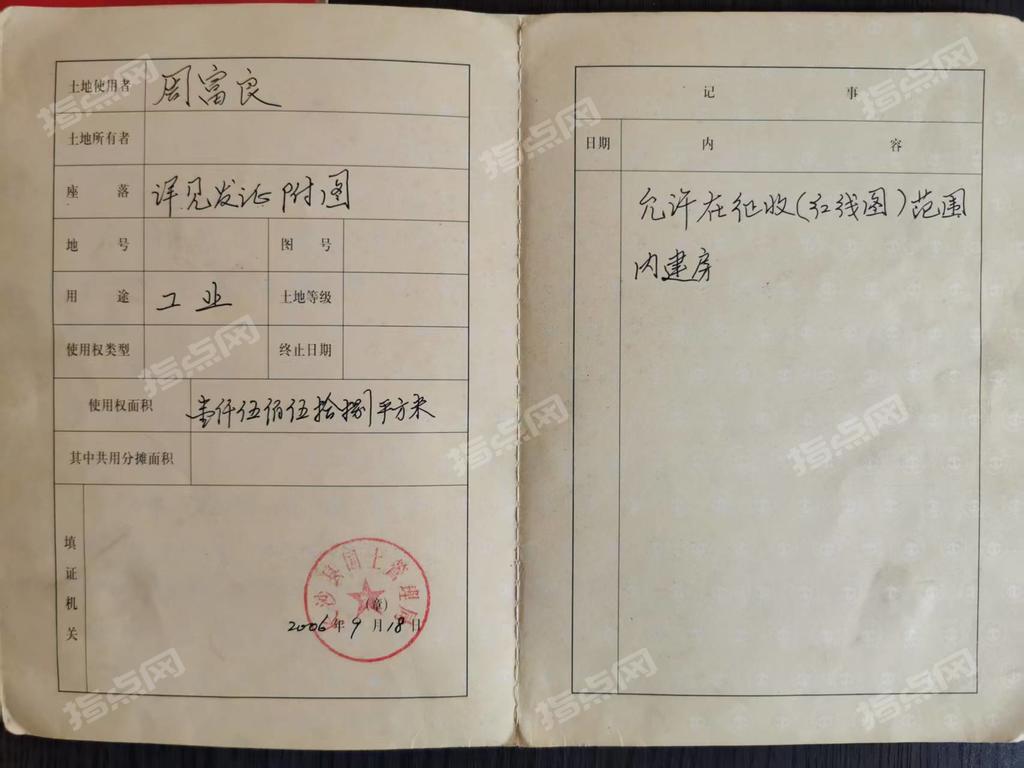 土地使用者 周富良
土地所有者
座落 详见发证附图
地号 图号
用途 工业 土地等级
使用权类型 终止日期
使用权面积 壹仟伍佰伍拾捌平方米
其中共用分摊面积
填证机关
沙县国土管理局
(章)
2006年9月18日
记事
日期 内容
允许在征收(红线图)范围
内建房
指点网
指点网
指点网
指点网
指点网
指点网
指点网
指点网
指点网
指点网
指点网